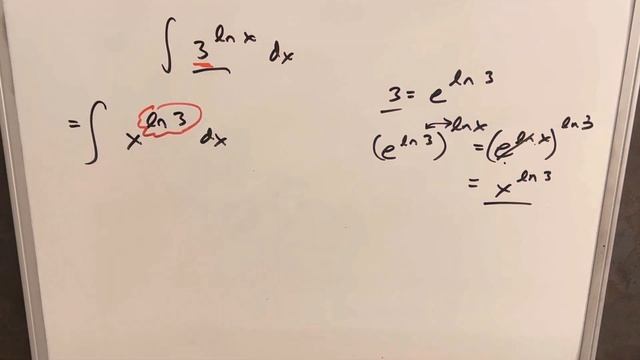 ∫ 3^{ln x} dx
= ∫ x^{ln 3} dx
3 = e^{ln 3}
(e^{ln 3})^{ln x} = (e^{ln x})^{ln 3}
= x^{ln 3}